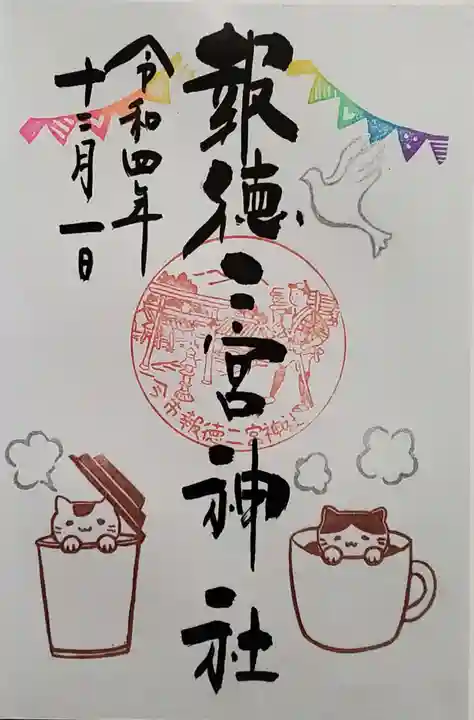 報徳二宮神社
令和四年
十二月一日
今市報徳二宮神社